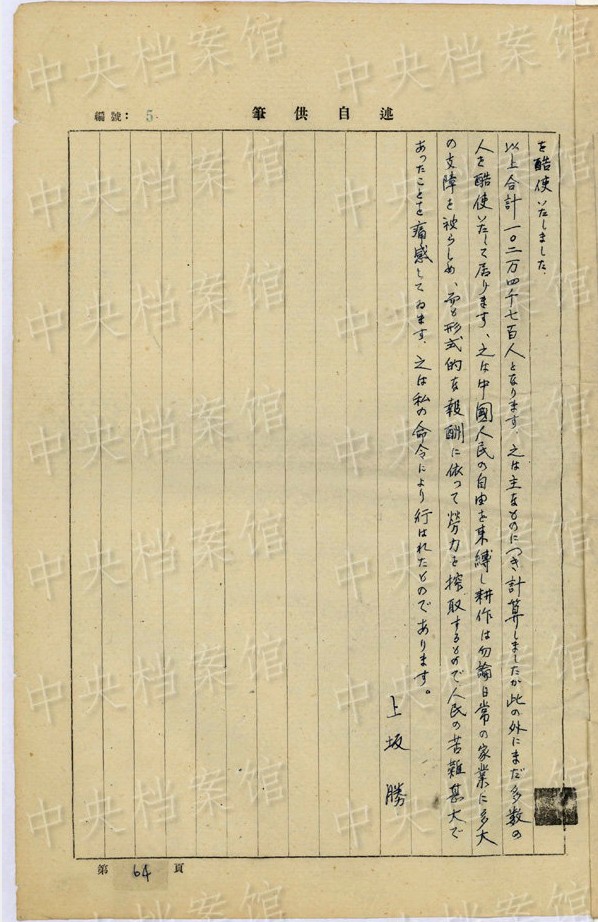 述自供筆
編號: 5.
を酷使いたしました.
以上合計一〇二万四千七百人となります、之は主なものにつき計算しましたが此の外にまだ多数の
人を酷使いたして居ります、之は中國人民の自由を束縛し耕作は勿論日常の家業に多大
の支障を被らしめ、而も形式的な報酬に依って勞力を搾取するもので人民の苦難甚大で
あったことを痛感してゐます、之は私の命令により行はれたものであります。
上坂勝
第 64 頁
中央档案馆